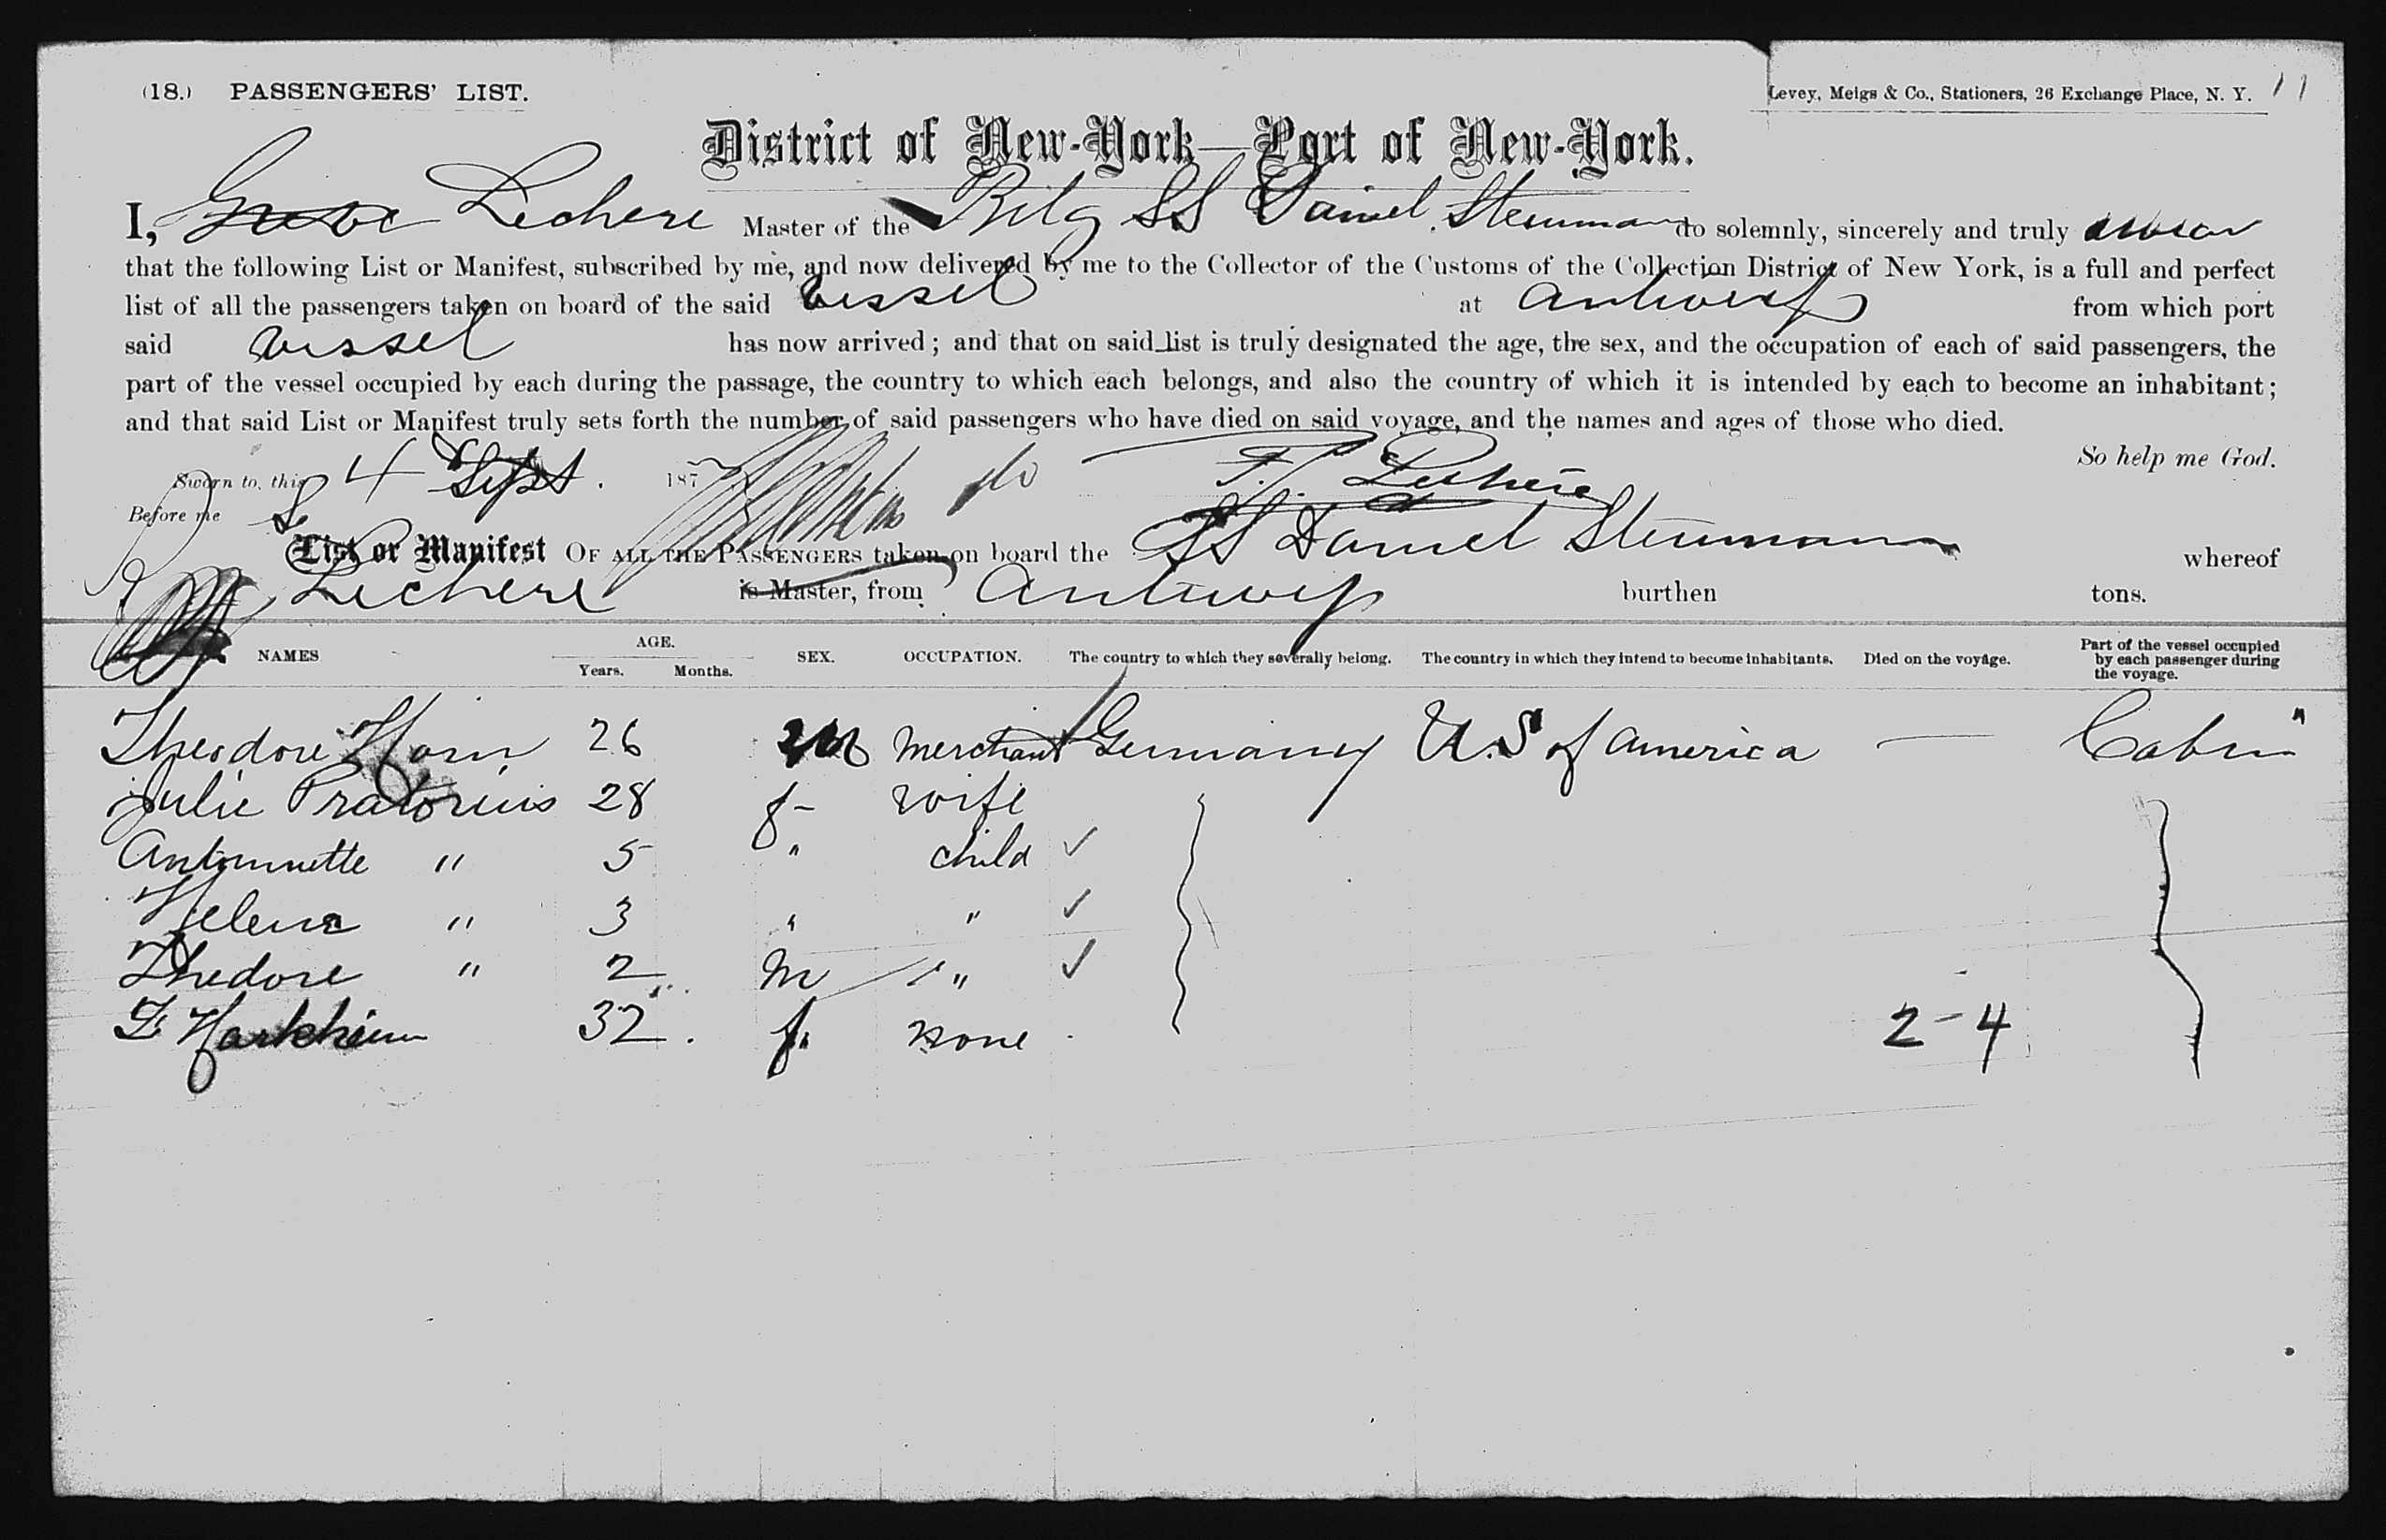 (18.) PASSENGERS' LIST.
Levey, Meigs & Co., Stationers, 26 Exchange Place, N. Y. 11
District of New-York—Port of New-York.
I, Lechere Master of the Belg SS Daniel Steinmann do solemnly, sincerely and truly swear
that the following List or Manifest, subscribed by me, and now delivered by me to the Collector of the Customs of the Collection District of New York, is a full and perfect
list of all the passengers taken on board of the said vessel at Antwerp from which port
said vessel has now arrived; and that on said list is truly designated the age, the sex, and the occupation of each of said passengers, the
part of the vessel occupied by each during the passage, the country to which each belongs, and also the country of which it is intended by each to become an inhabitant;
and that said List or Manifest truly sets forth the number of said passengers who have died on said voyage, and the names and ages of those who died.
So help me God.
Sworn to, this 4 Sept. 187
Before me
List or Manifest OF ALL THE PASSENGERS taken on board the SS Daniel Steinmann whereof
Lechere is Master, from Antwerp burthen tons.
NAMES AGE. Years. Months. SEX. OCCUPATION. The country to which they severally belong. The country in which they intend to become inhabitants. Died on the voyage. Part of the vessel occupied by each passenger during the voyage.
Theodore Horn 26 M Merchant Germany U.S of America — Cabin
Julie Pratorius 28 f- wife
Antoinnette " 5 " child ✓
Helena " 3 " " ✓
Thedore " 2 M " ✓
32 f. none 2-4